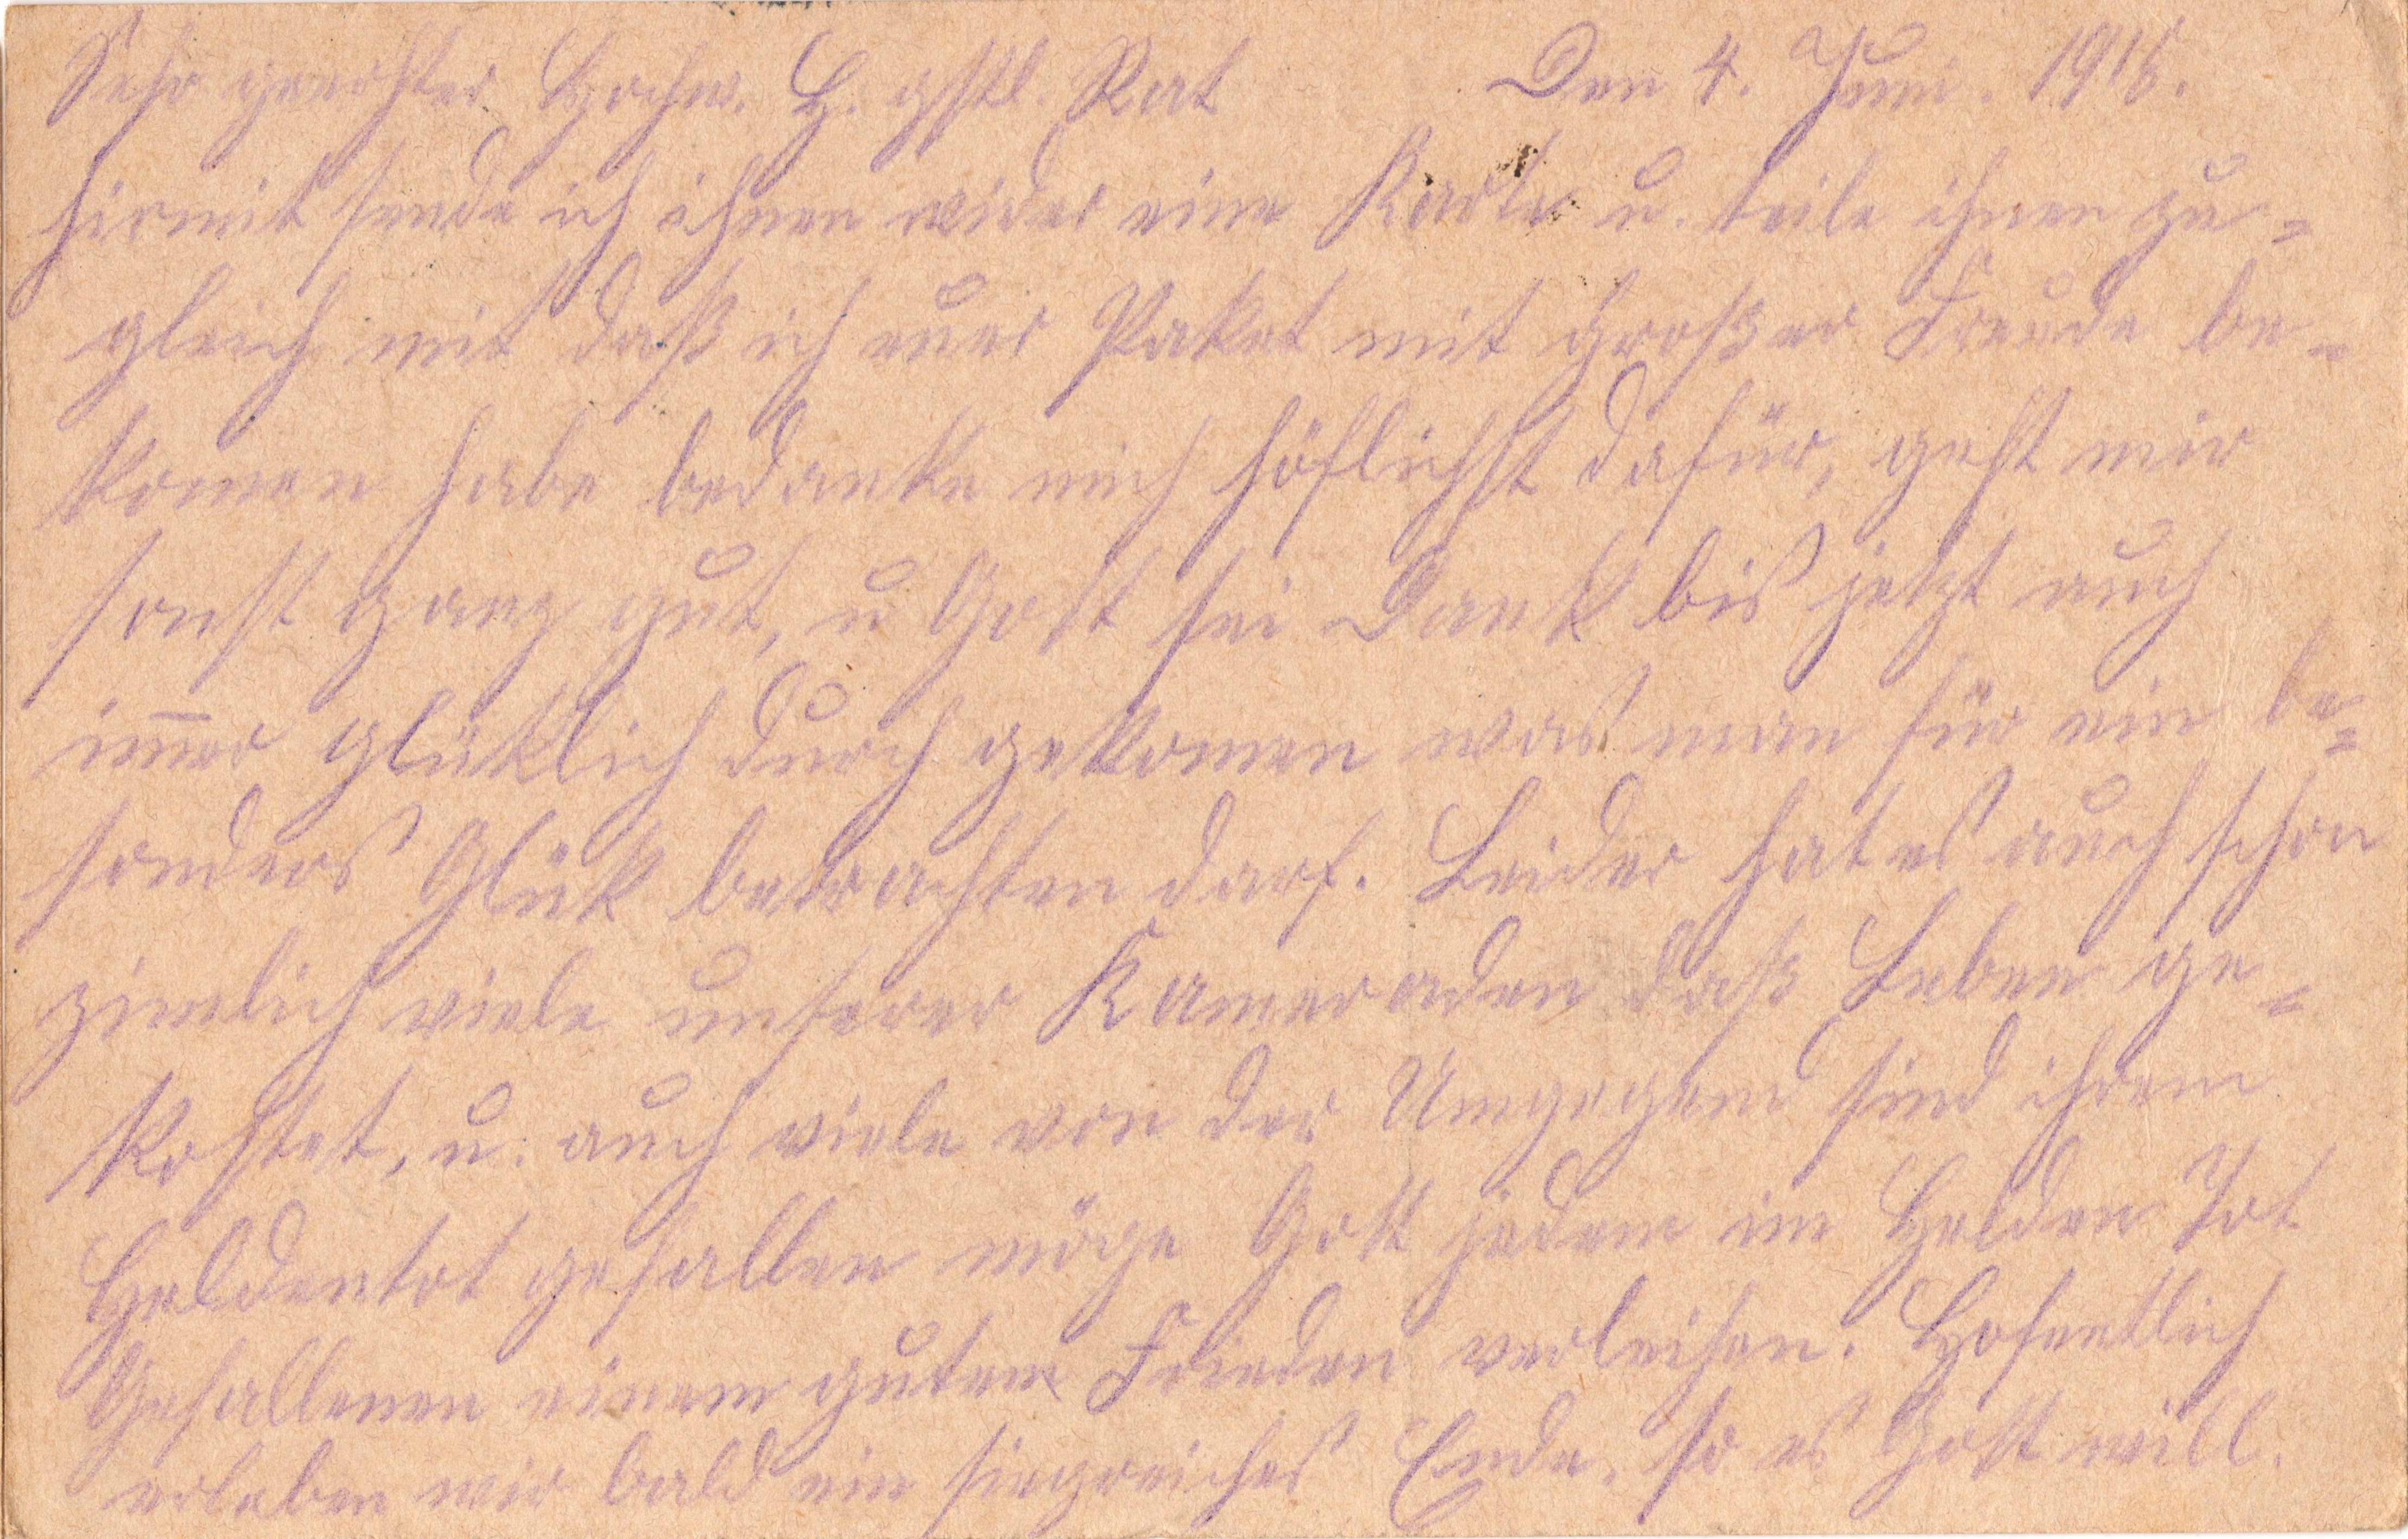 Sehr geerhter Hochw. H. gstl. Rat Den 4. Juni. 1915.
hirmit sende ich ihnen wider eine Karte u. teile ihnen zu=
gleich mit daß ich euer Paket mit großer Freude be-
komen habe bedanke mich höflichst dafür, geht mir
sonst ganz gut, u Gott sei Dank bis jetzt auch
im̅er glüklich durch gekomen was man für ein be=
sonders Glük betrachten darf. Leider hat es auch schon
zimlich viele unserer Kameraden daß Leben ge=
kostet, u. auch viele von der Umgegend sind ihrem
Heldentot gefallen möge Gott jedem im Helden Tot
Gefallenen einem gutem Frieden verleihen. Hofentlich
erleben wir bald ein siegreiches Ende, so es Gott will.